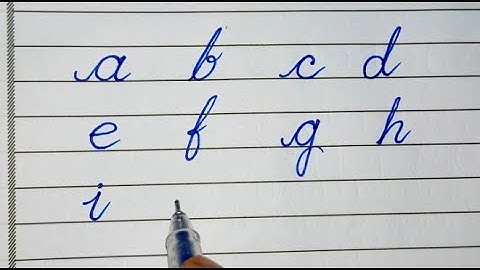 a b c d
e f g h
i